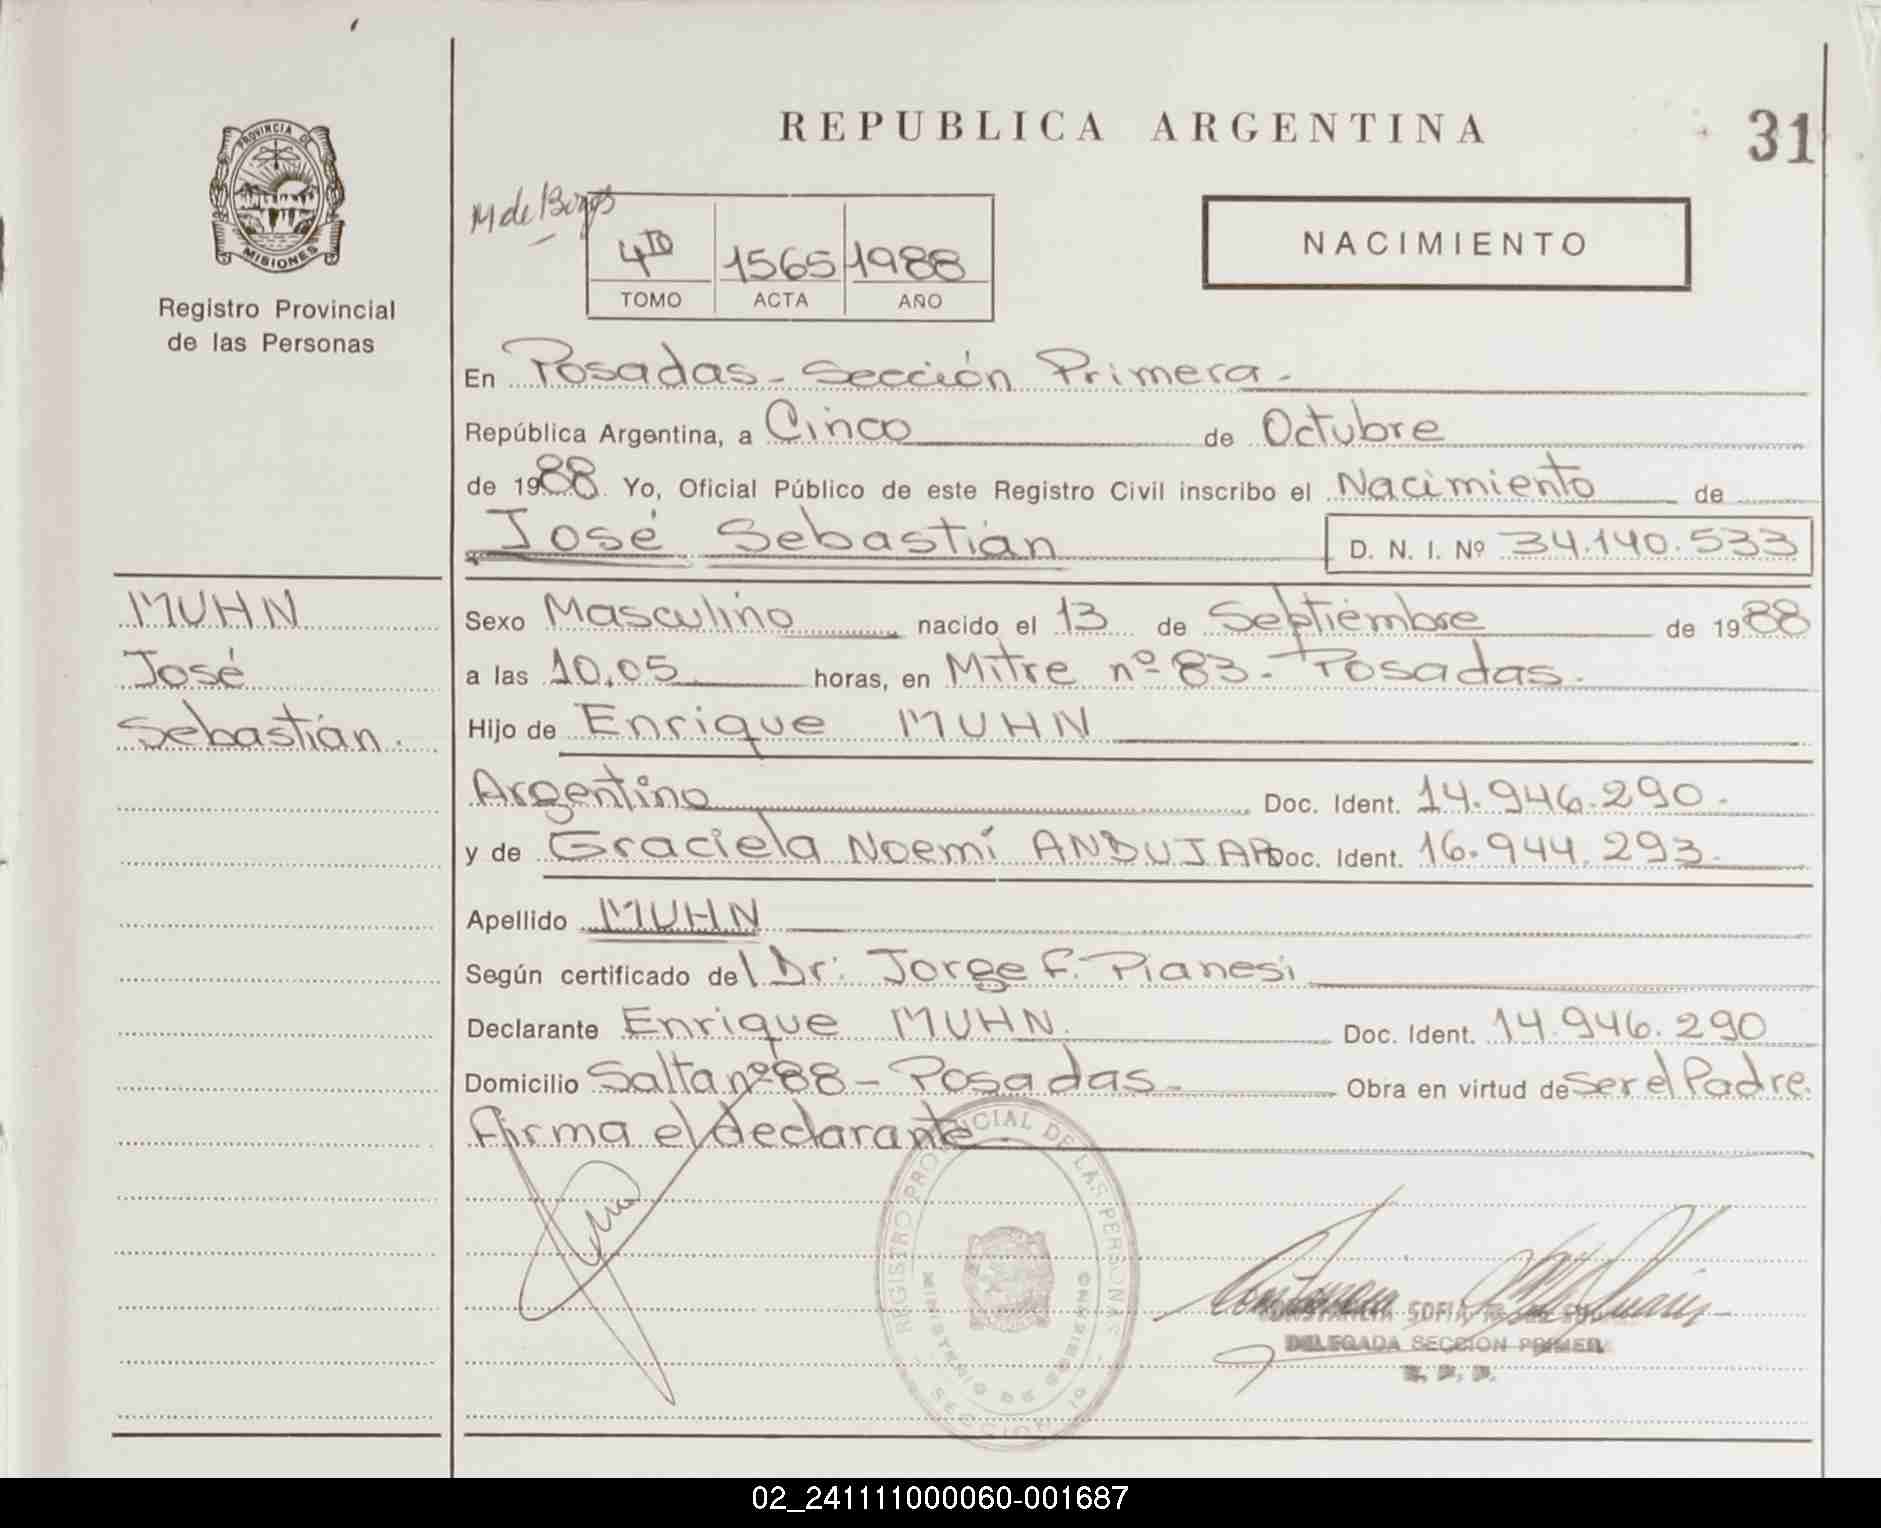 REPUBLICA ARGENTINA
31
PROVINCIA DE
MISIONES
Registro Provincial
de las Personas
M de
4TO 1565 1988
TOMO ACTA AÑO
NACIMIENTO
En Posadas - Sección Primera.-
República Argentina, a Cinco de Octubre
de 1988. Yo, Oficial Público de este Registro Civil inscribo el Nacimiento de
José Sebastián D. N. I. Nº 34.140.533
MUHN
José
Sebastián.
Sexo Masculino nacido el 13 de Septiembre de 1988
a las 10.05 horas, en Mitre nº 83 - Posadas.
Hijo de Enrique MUHN
Argentino Doc. Ident. 14.946.290.
y de Graciela Noemí ANDUJAR Doc. Ident. 16.944.293.
Apellido MUHN
Según certificado del Dr. Jorge F. Pianesi
Declarante Enrique MUHN. Doc. Ident. 14.946.290
Domicilio Salta nº 88 - Posadas. Obra en virtud de ser el Padre.
Firma el declarante.
REGISTRO PROVINCIAL DE LAS PERSONAS
MINISTERIO DE GOBIERNO
SECCION 1º
CONSTANCIA SOFIA
DELEGADA SECCION PRIMERA
R. P. P.
02_241111000060-001687